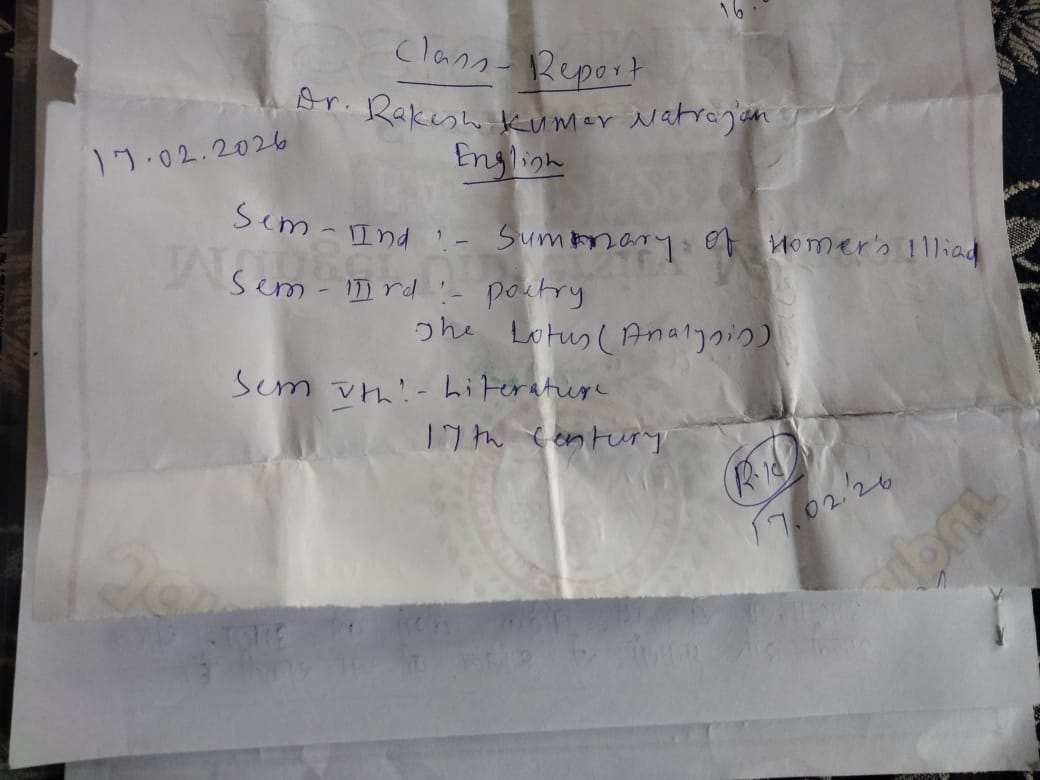 16.
Class - Report
Dr. Rakesh Kumar Natrajan
17.02.2026
English
Sem - IInd :- Summary of Homer's Illiad
Sem - III rd :- Poetry
The Lotus (Analysis)
Sem Vth :- Literature
17th Century
R.K
17.02.'26